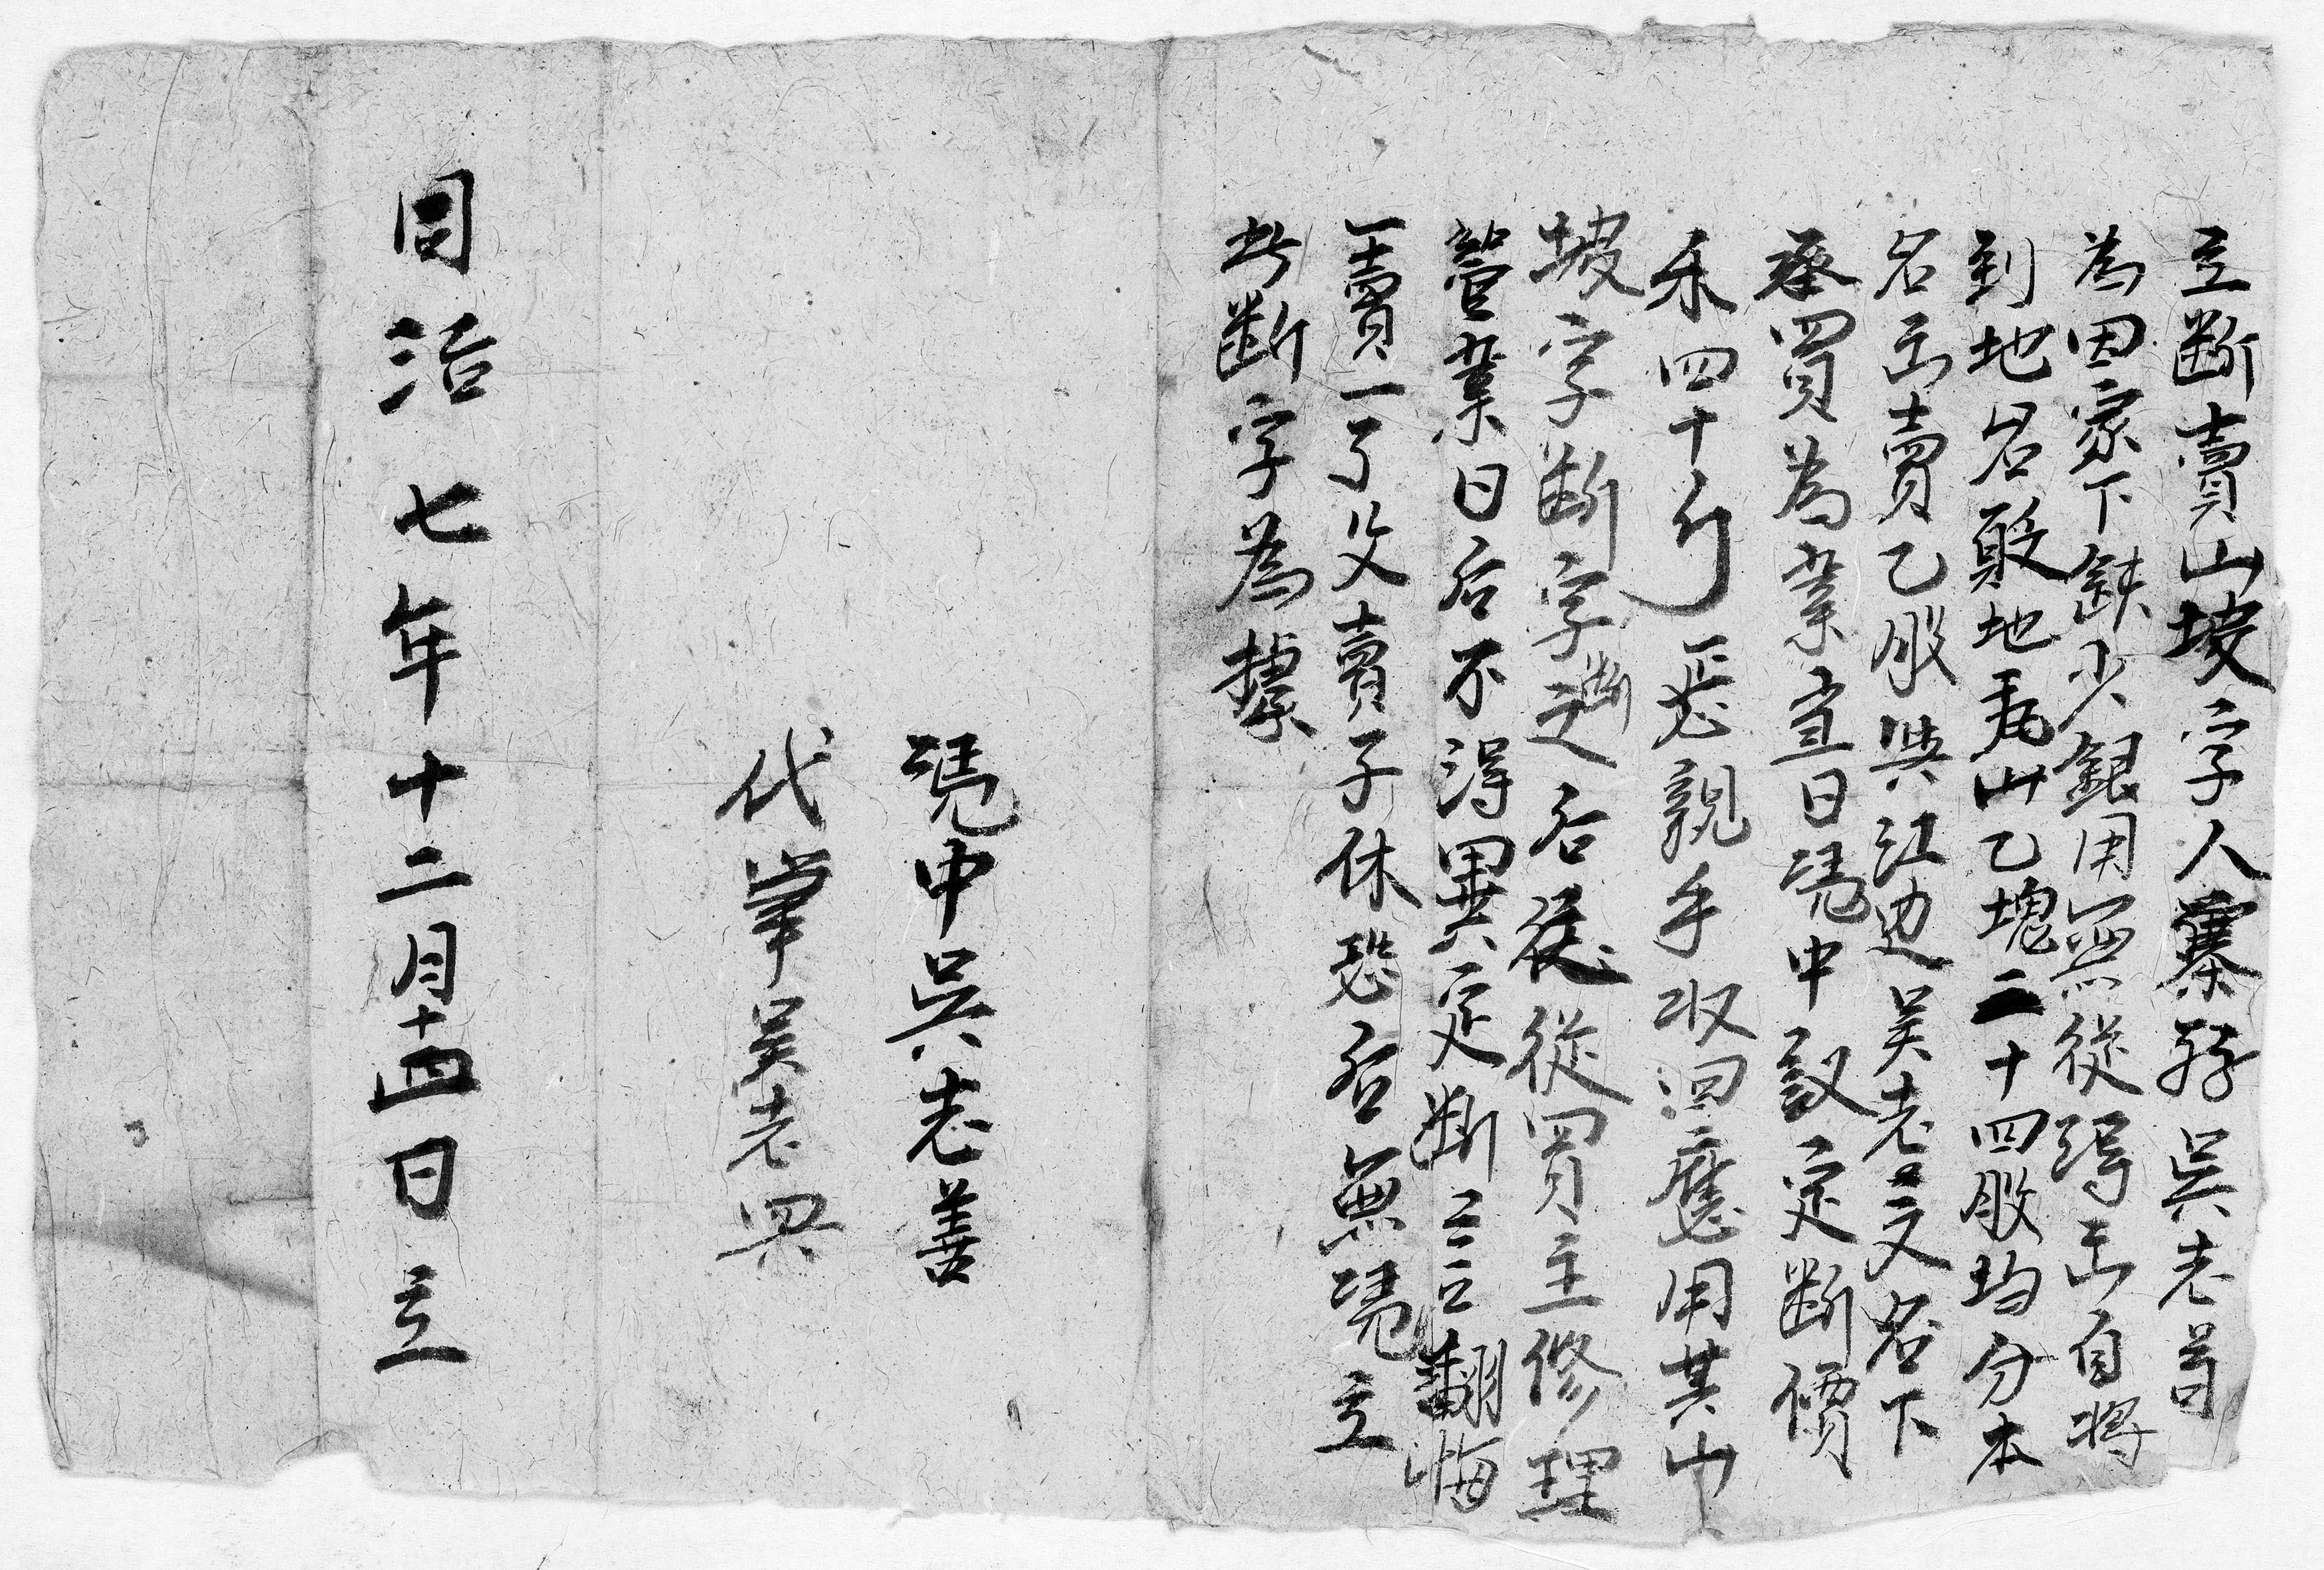 立斷賣山坡字人寨孖吳老肖
為因家下缺少銀用無從得出自將
到地名毆地毛山乙塊二十四股均分本
名出賣乙股與江边吴老文名下
承買為業當日凴中議定斷價
禾四十斤 親手收回應用其山
坡字斷字斷之后從買主修理
營業日后不得異定斷言翻悔
一賣一了父賣子休恐后無凴立
此斷字為據
凴中吳志善
代筆吴老
同治七年十二月十四日立